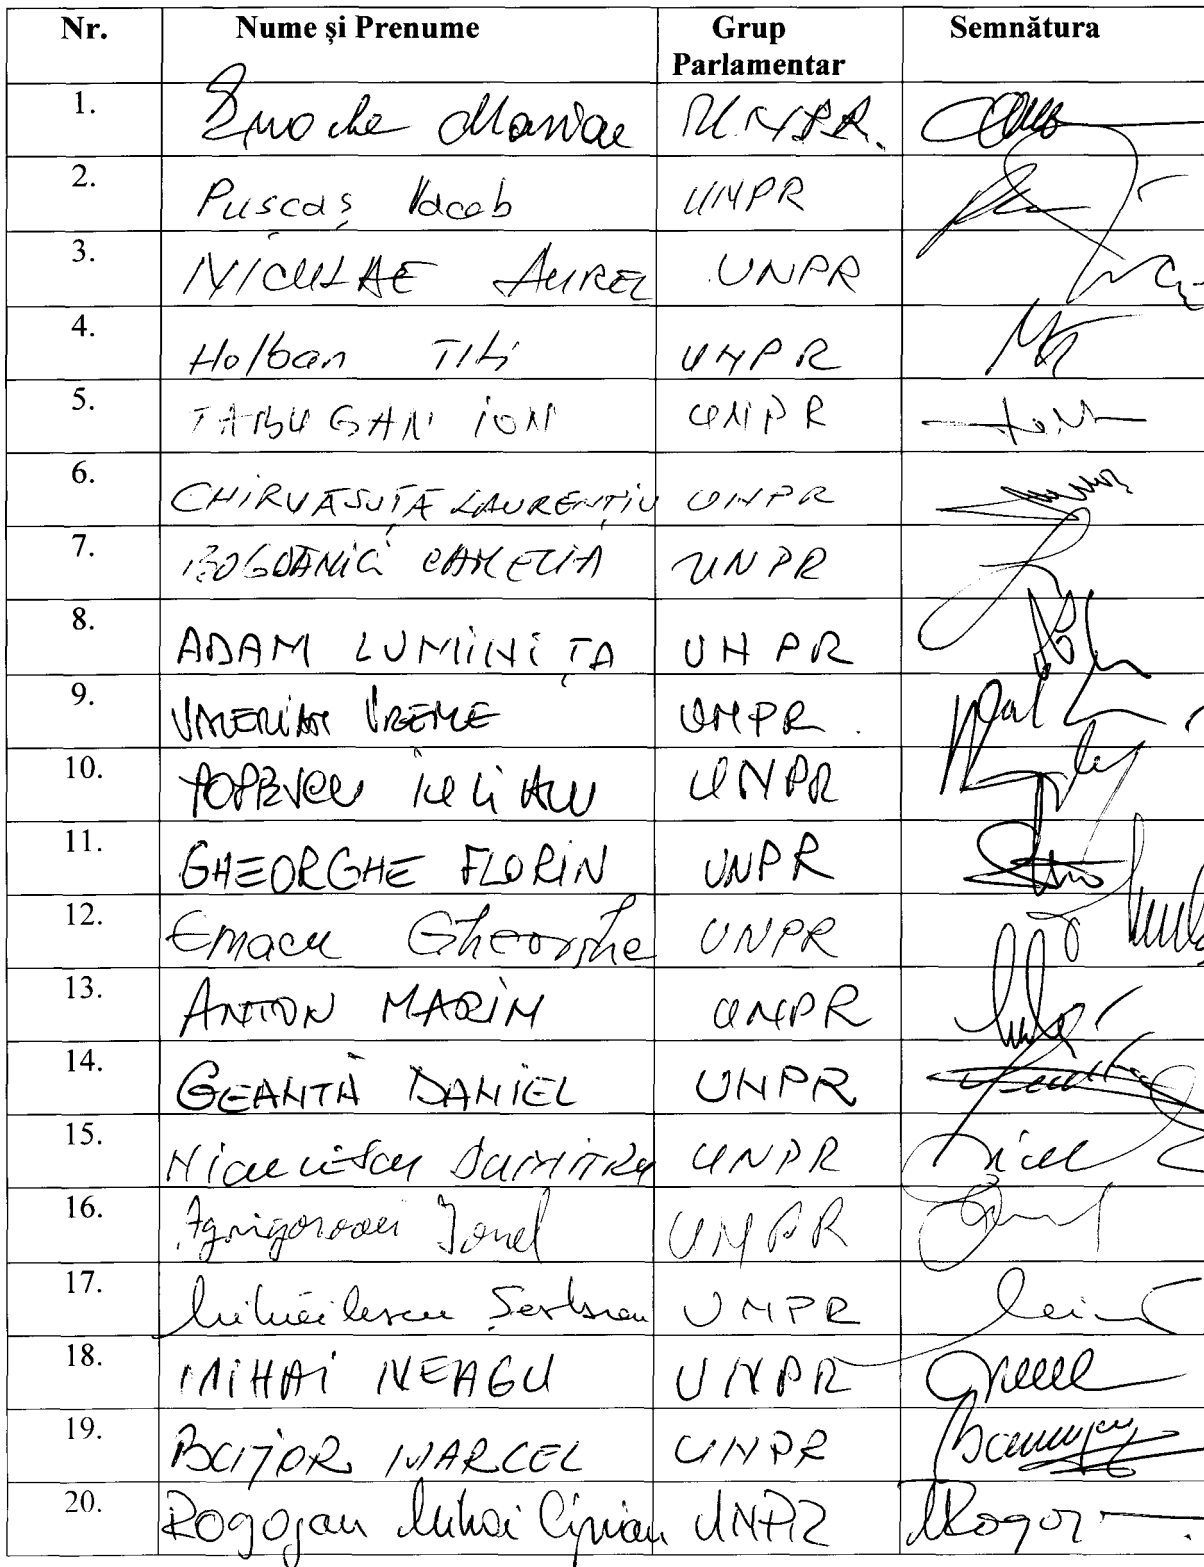 Nr. Nume și Prenume Grup Parlamentar Semnătura
1. Enache Marian UNPR.
2. Pușcaș Vacab UNPR
3. NICULAE AUREL UNPR
4. Holban Titi UNPR
5. TABUGAN ION UNPR
6. CHIRVĂSUȚĂ LAURENȚIU UNPR
7. BOGDĂNICI CAMELIA UNPR
8. ADAM LUMINIȚA UNPR
9. VALERIAN VREME UNPR.
10. POPESCU IULIAN UNPR
11. GHEORGHE FLORIN UNPR
12. Emacu Gheorghe UNPR
13. ANTON MARIN UNPR
14. GEANTĂ DANIEL UNPR
15. Niculescu DUMITRU UNPR
16. Agrigoroaei Ionel UNPR
17. Mihăilescu Șerban UNPR
18. MIHAI NEAGU UNPR
19. BOJOR MARCEL UNPR
20. Rogojan Mihai Ciprian UNPR